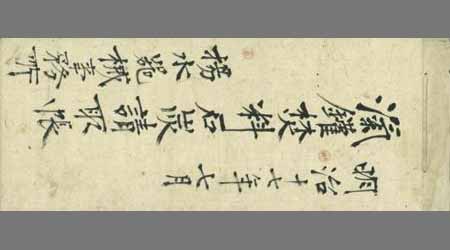 明治十七年七月
滊鑵焚料石炭請取帳
揚水器械事務所